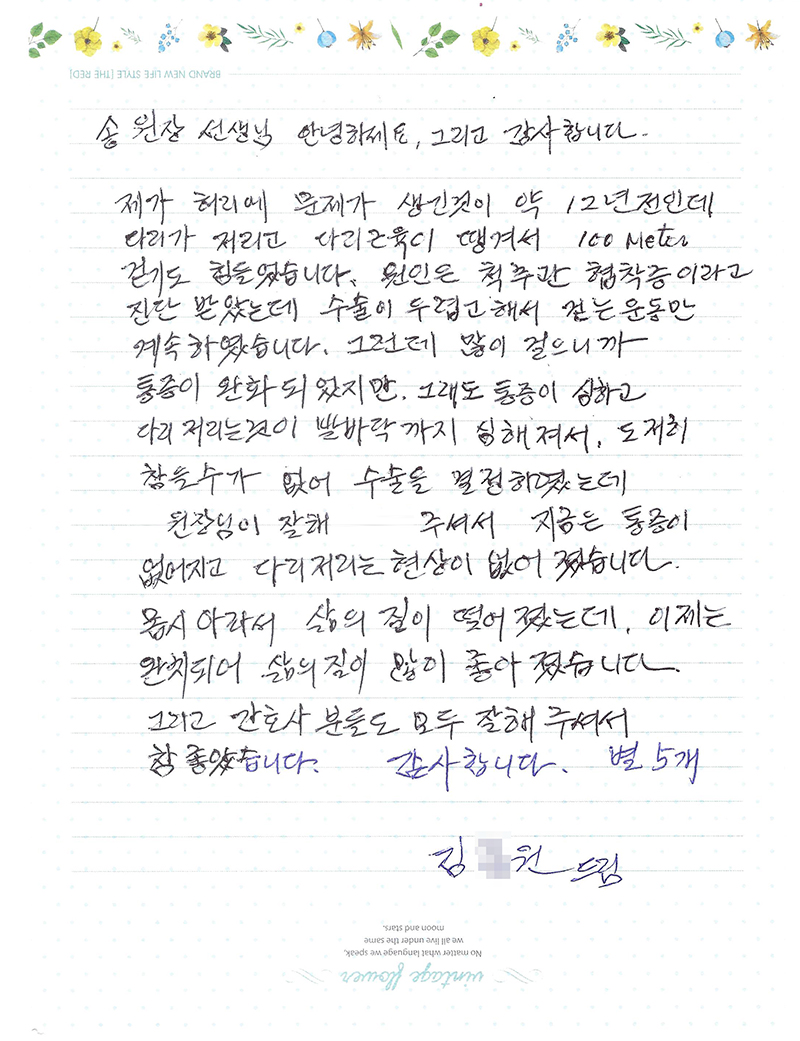 BRAND NEW LIFE STYLE [THE RED]
송 원장 선생님 안녕하세요, 그리고 감사합니다.
제가 허리에 문제가 생긴것이 약 12년전인데
다리가 저리고 다리근육이 땡겨서 100 Meter
걷기도 힘들었습니다. 원인은 척추관 협착증이라고
진단 받았는데 수술이 두렵고해서 걷는 운동만
계속하였습니다. 그런데 많이 걸으니까
통증이 완화 되었지만. 그래도 통증이 심하고
다리 저리는것이 발바닥까지 심해져서, 도저히
참을수가 없어 수술을 결정하였는데
원장님이 잘해 주셔서 지금은 통증이
없어지고 다리저리는 현상이 없어 졌습니다.
몹시 아파서 삶의 질이 떨어졌는데, 이제는
완치되어 삶의질이 많이 좋아 졌습니다.
그리고 간호사 분들도 모두 잘해 주셔서
참 좋았습니다. 감사합니다. 별 5개
김 원 드림
vintage flower
No matter what language we speak,
we all live under the same
moon and stars.